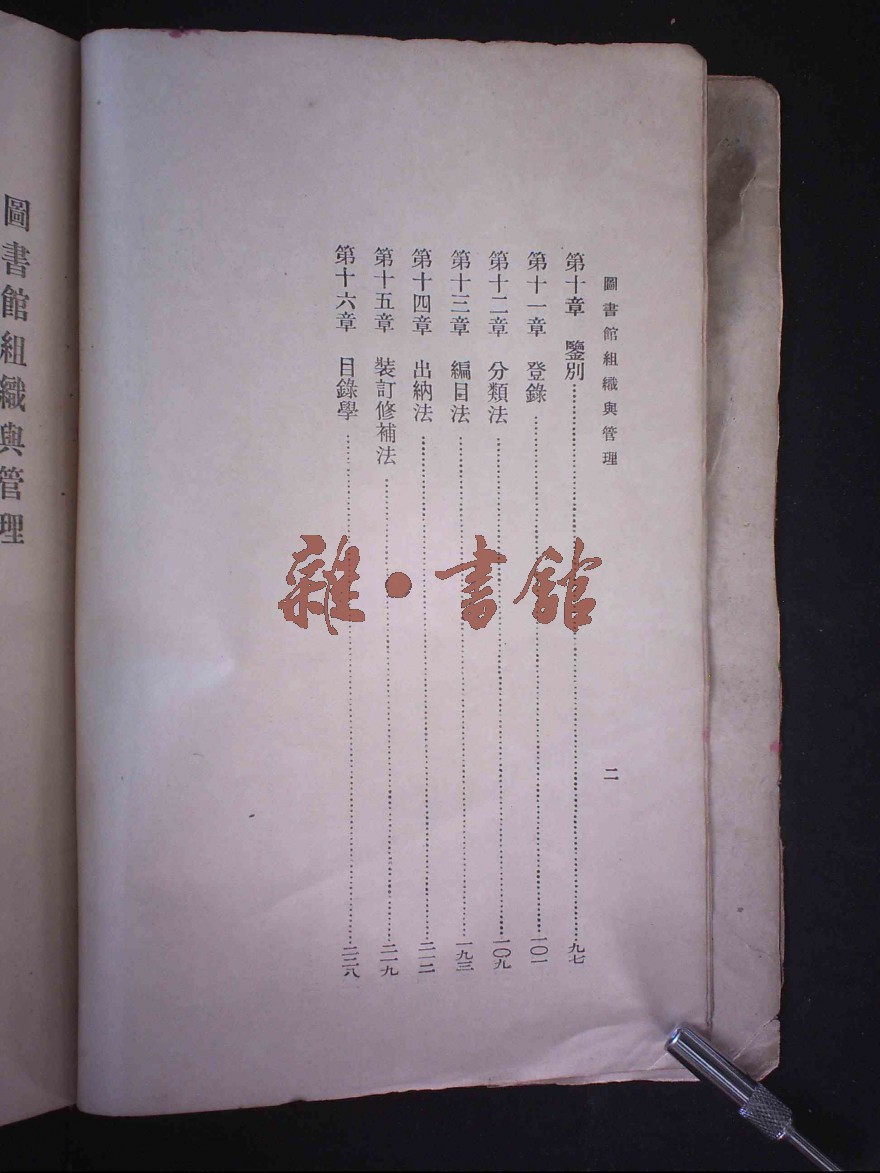 圖書館組織與管理
二
第十章　鑒別……九七
第十一章　登錄……一〇一
第十二章　分類法……一〇九
第十三章　編目法……一九三
第十四章　出納法……二一二
第十五章　裝訂修補法……二一九
第十六章　目錄學……二二八
圖書館組織與管理
雜·書館